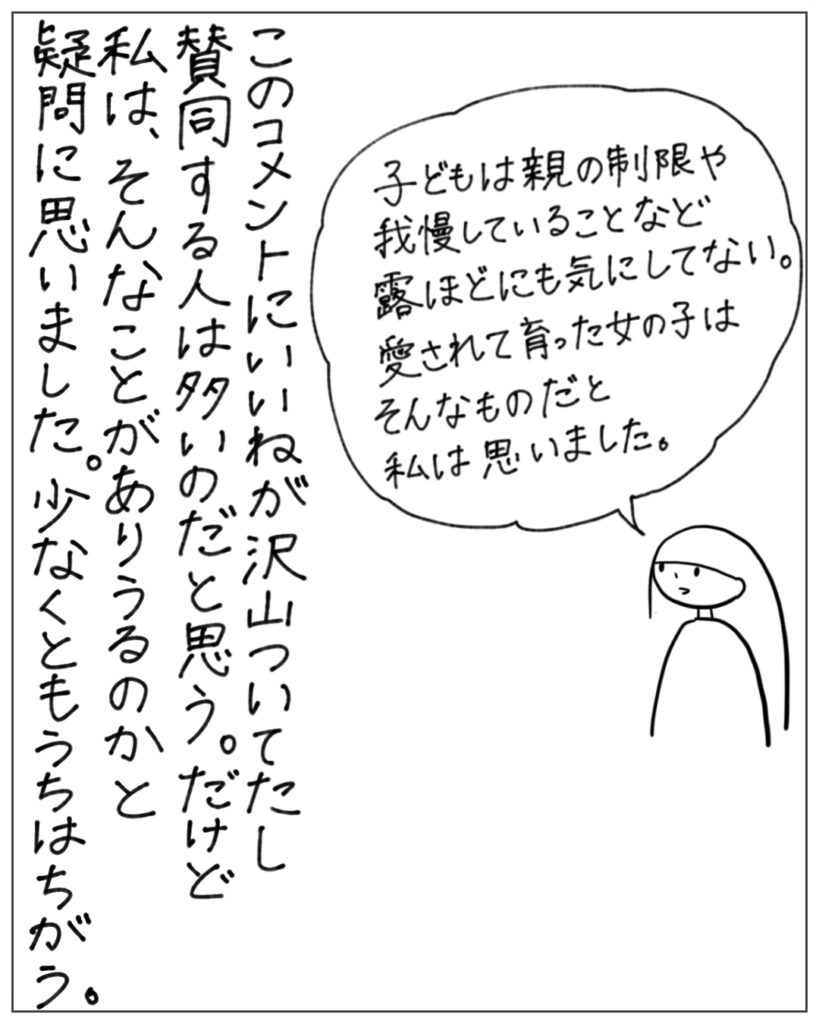 子どもは親の制限や
我慢していることなど
露ほどにも気にしてない。
愛されて育った女の子は
そんなものだと
私は思いました。
このコメントにいいねが沢山ついてたし
賛同する人は多いのだと思う。だけど
私は、そんなことがありうるのかと
疑問に思いました。少なくともうちはちがう。